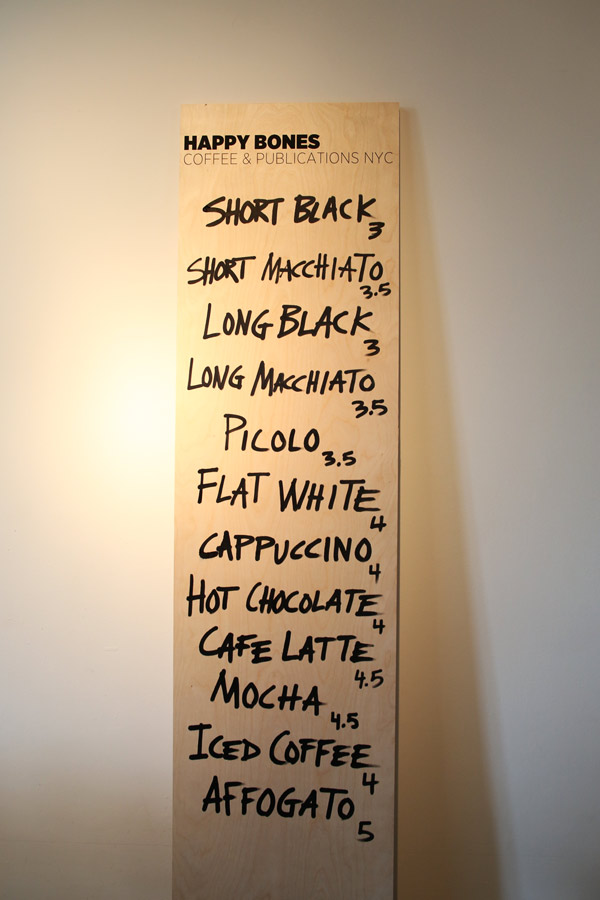 HAPPY BONES
COFFEE & PUBLICATIONS NYC
SHORT BLACK
3
SHORT MACCHIATO
3.5
LONG BLACK
3
LONG MACCHIATO
3.5
PICOLO
3.5
FLAT WHITE
4
CAPPUCCINO
4
HOT CHOCOLATE
4
CAFE LATTE
4.5
MOCHA
4.5
ICED COFFEE
4
AFFOGATO
5